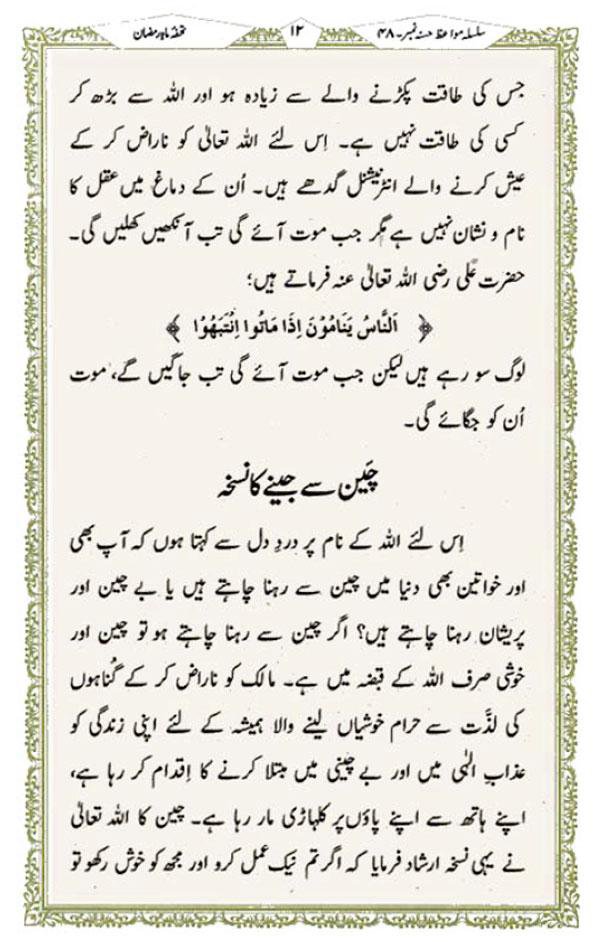 سلسلہ مواعظ حسنہ نمبر۔۴۸
۱۲
تحفۂ ماہِ رمضان
جس کی طاقت پکڑنے والے سے زیادہ ہو اور اللہ سے بڑھ کر
کسی کی طاقت نہیں ہے۔ اِس لئے اللہ تعالیٰ کو ناراض کر کے
عیش کرنے والے انٹرنیشنل گدھے ہیں۔ اُن کے دماغ میں عقل کا
نام و نشان نہیں ہے مگر جب موت آئے گی تب آنکھیں کھلیں گی۔
حضرت علی رضی اللہ تعالیٰ عنہ فرماتے ہیں؛
﴿ اَلنَّاسُ یَنَامُوْنَ اِذَا مَاتُوا اِنْتَبَھُوْا ﴾
لوگ سو رہے ہیں لیکن جب موت آئے گی تب جاگیں گے، موت
اُن کو جگائے گی۔
چَین سے جینے کا نسخہ
اِس لئے اللہ کے نام پر دردِ دل سے کہتا ہوں کہ آپ بھی
اور خواتین بھی دنیا میں چین سے رہنا چاہتے ہیں یا بے چین اور
پریشان رہنا چاہتے ہیں؟ اگر چین سے رہنا چاہتے ہو تو چین اور
خوشی صرف اللہ کے قبضہ میں ہے۔ مالک کو ناراض کر کے گناہوں
کی لذَّت سے حرام خوشیاں لینے والا ہمیشہ کے لئے اپنی زندگی کو
عذابِ الٰہی میں اور بے چینی میں مبتلا کرنے کا اِقدام کر رہا ہے،
اپنے ہاتھ سے اپنے پاؤں پر کلہاڑی مار رہا ہے۔ چین کا اللہ تعالیٰ
نے یہی نسخہ ارشاد فرمایا کہ اگر تم نیک عمل کرو اور مجھ کو خوش رکھو تو